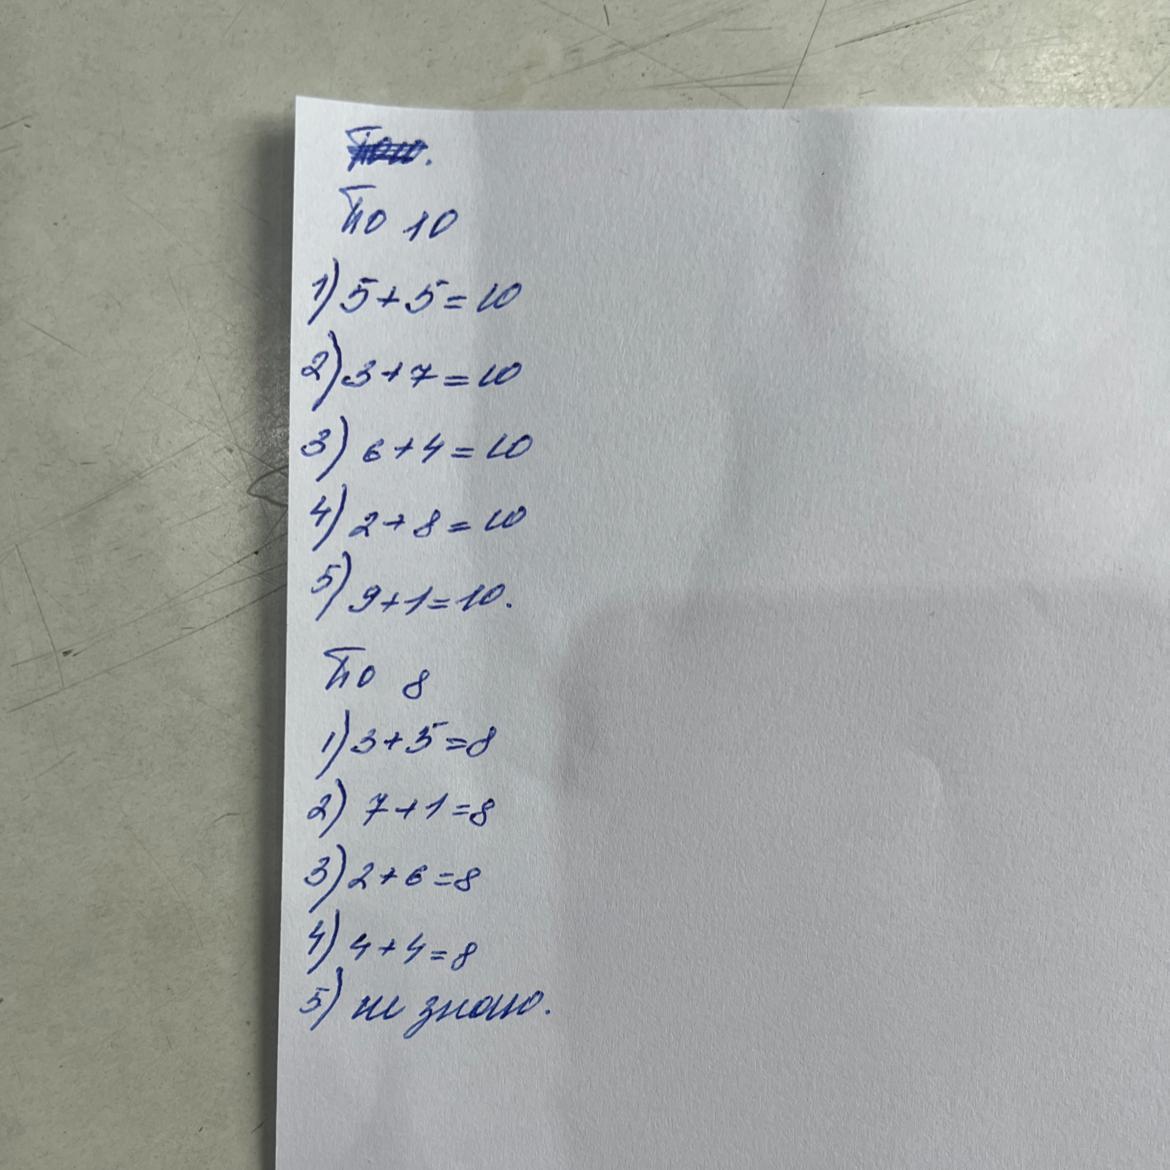 По 10
1) 5+5=10
2) 3+7=10
3) 6+4=10
4) 2+8=10
5) 9+1=10.
По 8
1) 3+5=8
2) 7+1=8
3) 2+6=8
4) 4+4=8
5) не знаю.